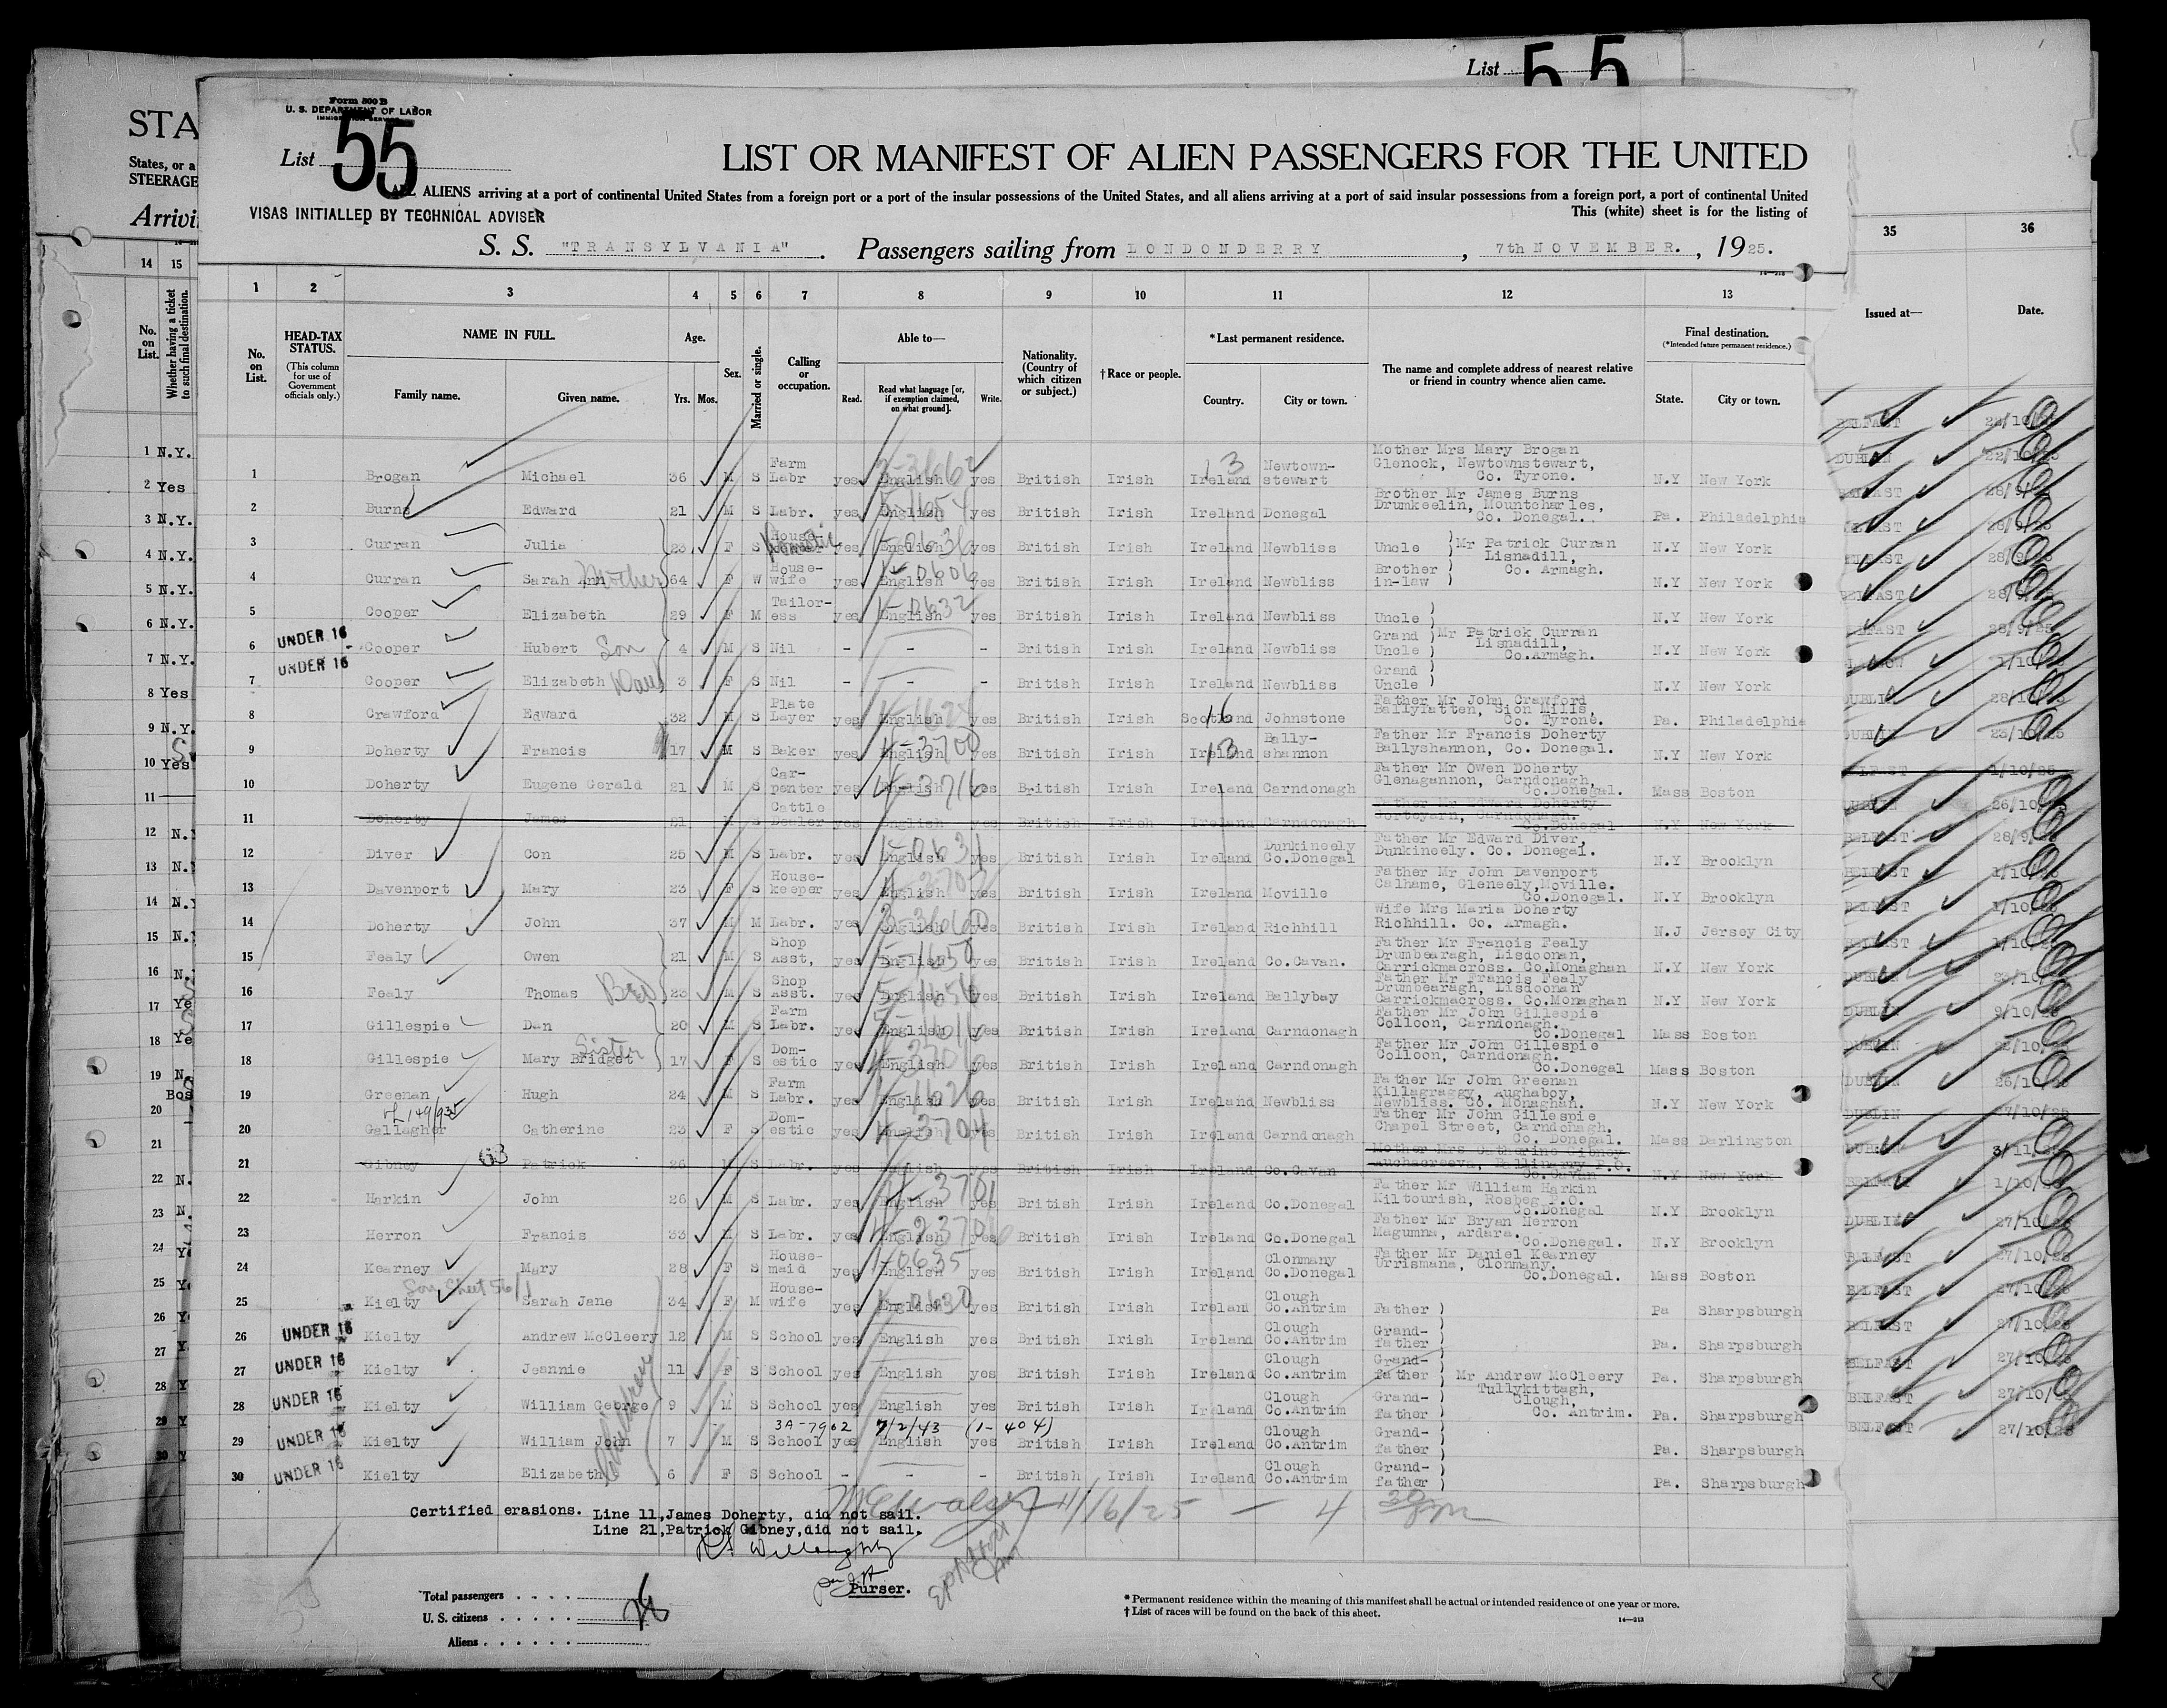 List 55
Form 500 B
U. S. DEPARTMENT OF LABOR
IMMIGRATION SERVICE
List 55
LIST OR MANIFEST OF ALIEN PASSENGERS FOR THE UNITED
ALL ALIENS arriving at a port of continental United States from a foreign port or a port of the insular possessions of the United States, and all aliens arriving at a port of said insular possessions from a foreign port, a port of continental United
VISAS INITIALLED BY TECHNICAL ADVISER
This (white) sheet is for the listing of
S. S. "TRANSYLVANIA". Passengers sailing from LONDONDERRY, 7th NOVEMBER., 1925.
STA
States, or a
STEERAGE
Arrivi
14 15
No. on List.
Whether having a ticket to such final destination.
35 36
Issued at— Date.
1 2 3 4 5 6 7 8 9 10 11 12 13
No. on List.
HEAD-TAX STATUS.
(This column for use of Government officials only.)
NAME IN FULL.
Family name. Given name.
Age. Yrs. Mos.
Sex.
Married or single.
Calling or occupation.
Able to—
Read. Read what language [or, if exemption claimed, on what ground]. Write.
Nationality. (Country of which citizen or subject.)
†Race or people.
*Last permanent residence.
Country. City or town.
The name and complete address of nearest relative or friend in country whence alien came.
Final destination.
(*Intended future permanent residence.)
State. City or town.
1 Brogan Michael 36 M S Farm Labr yes English yes British Irish Ireland Newtown-stewart Mother Mrs Mary Brogan Glenock, Newtownstewart, Co. Tyrone. N.Y New York
2 Burns Edward 21 M S Labr. yes English yes British Irish Ireland Donegal Brother Mr James Burns Drumkeelin, Mountcharles, Co. Donegal. Pa. Philadelphia
3 Curran Julia 23 F S Domestic yes English yes British Irish Ireland Newbliss Uncle Mr Patrick Curran Lisnadill, Co. Armagh. N.Y New York
4 Curran Sarah Ann Mother 64 F W House-wife yes English yes British Irish Ireland Newbliss Brother in-law N.Y New York
5 Cooper Elizabeth 29 F M Tailor-ess yes English yes British Irish Ireland Newbliss Uncle N.Y New York
UNDER 16 6 Cooper Hubert Son 4 M S Nil - - - British Irish Ireland Newbliss Grand Uncle Mr Patrick Curran Lisnadill, Co.Armagh. N.Y New York
UNDER 16 7 Cooper Elizabeth Dau 3 F S Nil - - - British Irish Ireland Newbliss Grand Uncle N.Y New York
8 Crawford Edward 32 M S Plate Layer yes English yes British Irish Scotland Johnstone Father Mr John Crawford Ballyfatten, Sion Mills, Co. Tyrone. Pa. Philadelphia
9 Doherty Francis 17 M S Baker yes English yes British Irish Ireland Bally-shannon Father Mr Francis Doherty Ballyshannon, Co. Donegal. N.Y New York
10 Doherty Eugene Gerald 21 M S Car-penter yes English yes British Irish Ireland Carndonagh Father Mr Owen Doherty Glenagannon, Carndonagh, Co.Donegal. Mass Boston
11 Doherty James 21 M S Cattle Dealer yes English yes British Irish Ireland Carndonagh Father Mr Edward Doherty Carndonagh. Co.Donegal N.Y New York
12 Diver Con 25 M S Labr. yes English yes British Irish Ireland Dunkineely Co.Donegal Father Mr Edward Diver, Dunkineely. Co. Donegal. N.Y Brooklyn
13 Davenport Mary 23 F S House-keeper yes English yes British Irish Ireland Moville Father Mr John Davenport Calhame, Gleneely, Moville. Co.Donegal. N.Y Brooklyn
14 Doherty John 37 M M Labr. yes English yes British Irish Ireland Richhill Wife Mrs Maria Doherty Richhill. Co. Armagh. N.J Jersey City
15 Fealy Owen 21 M S Shop Asst, yes English yes British Irish Ireland Co.Cavan. Father Mr Francis Fealy Drumbearagh, Lisdoonan, Carrickmacross. Co.Monaghan N.Y New York
16 Fealy Thomas Bro 23 M S Shop Asst. yes English yes British Irish Ireland Ballybay Father Mr Francis Fealy Drumbearagh, Lisdoonan Carrickmacross. Co.Monaghan N.Y New York
17 Gillespie Dan 20 M S Farm Labr. yes English yes British Irish Ireland Carndonagh Father Mr John Gillespie Colloon, Carndonagh. Co.Donegal Mass Boston
18 Gillespie Mary Bridget Sister 17 F S Dom-estic yes English yes British Irish Ireland Carndonagh Father Mr John Gillespie Colloon, Carndonagh. Co.Donegal Mass Boston
19 Greenan Hugh 24 M S Farm Labr. yes English yes British Irish Ireland Newbliss Father Mr John Greenan Killagraggy, Aughaboy, Newbliss. Co. Monaghan. N.Y New York
20 Gallagher Catherine 23 F S Dom-estic yes English yes British Irish Ireland Carndonagh Father Mr John Gillespie Chapel Street, Carndonagh. Co. Donegal. Mass Darlington
21 Gibney Patrick 26 M S Labr. yes English yes British Irish Ireland Co.Cavan Mother Mrs Catherine Gibney Co.Cavan N.Y New York
22 Harkin John 26 M S Labr. yes English yes British Irish Ireland Co.Donegal Father Mr William Harkin Kiltourish, Rosbeg P.O. Co.Donegal N.Y Brooklyn
23 Herron Francis 33 M S Labr. yes English yes British Irish Ireland Co.Donegal Father Mr Bryan Herron Magumna, Ardara. Co.Donegal. N.Y Brooklyn
24 Kearney Mary 28 F S House-maid yes English yes British Irish Ireland Clonmany Co.Donegal Father Mr Daniel Kearney Urrismana, Clonmany. Co.Donegal. Mass Boston
Son Sheet 56/1
25 Kielty Sarah Jane 34 F M House-wife yes English yes British Irish Ireland Clough Co.Antrim Father Pa Sharpsburgh
UNDER 16 26 Kielty Andrew McCleery 12 M S School yes English yes British Irish Ireland Clough Co.Antrim Grand-father Pa. Sharpsburgh
UNDER 16 27 Kielty Jeannie 11 F S School yes English yes British Irish Ireland Clough Co.Antrim Grand-father Mr Andrew McCleery Tullykittagh, Clough, Co. Antrim. Pa. Sharpsburgh
UNDER 16 28 Kielty William George 9 M S School yes English yes British Irish Ireland Clough Co.Antrim Grand-father Pa. Sharpsburgh
3A-7902 7/2/43 (1-404)
UNDER 16 29 Kielty William John 7 M S School yes English yes British Irish Ireland Clough Co.Antrim Grand-father Pa. Sharpsburgh
UNDER 16 30 Kielty Elizabeth 6 F S School - - - British Irish Ireland Clough Co.Antrim Grand-father Pa. Sharpsburgh
Children
Certified erasions. Line 11, James Doherty, did not sail.
Line 21, Patrick Gibney, did not sail.
11/16/25 — 4
Purser.
Total passengers
U. S. citizens
Aliens
* Permanent residence within the meaning of this manifest shall be actual or intended residence of one year or more.
† List of races will be found on the back of this sheet.
14—213